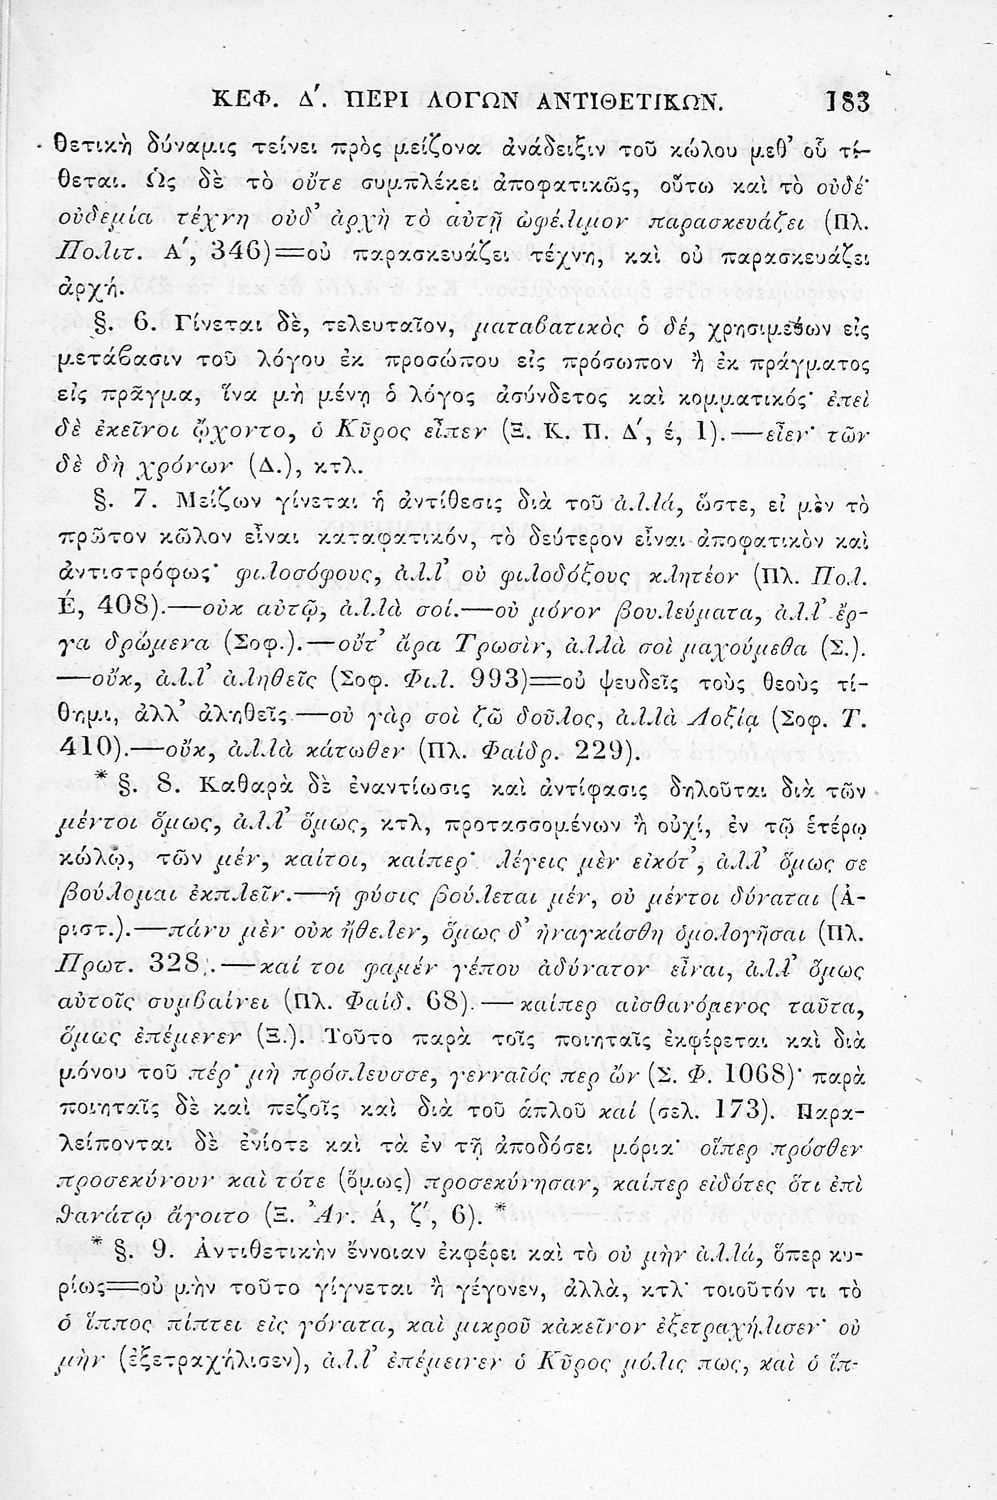 ΚΕΦ. Δ′. ΠΕΡΙ ΛΟΓΩΝ ΑΝΤΙΘΕΤΙΚΩΝ. 183
θετικὴ δύναμις τείνει πρὸς μείζονα ἀνάδειξιν τοῦ κώλου μεθ’ οὗ τί-
θεται. Ὡς δὲ τὸ οὔτε συμπλέκει ἀποφατικῶς, οὕτω καὶ τὸ οὐδέ·
οὐδεμία τέχνη οὐδ’ ἀρχὴ τὸ αὑτῇ ὠφέλιμον παρασκευάζει (Πλ.
Πολιτ. Α′, 346)=οὐ παρασκευάζει τέχνη, καὶ οὐ παρασκευάζει
ἀρχή.
§. 6. Γίνεται δὲ, τελευταῖον, μεταβατικὸς ὁ δέ, χρησιμεύων εἰς
μετάβασιν τοῦ λόγου ἐκ προσώπου εἰς πρόσωπον ἢ ἐκ πράγματος
εἰς πρᾶγμα, ἵνα μὴ μένῃ ὁ λόγος ἀσύνδετος καὶ κομματικός· ἐπεὶ
δὲ ἐκεῖνοι ᾤχοντο, ὁ Κῦρος εἶπεν (Ξ. Κ. Π. Δ′, έ, 1).—εἶεν· τῶν
δὲ δὴ χρόνων (Δ.), κτλ.
§. 7. Μείζων γίνεται ἡ ἀντίθεσις διὰ τοῦ ἀλλά, ὥστε, εἰ μὲν τὸ
πρῶτον κῶλον εἶναι καταφατικόν, τὸ δεύτερον εἶναι ἀποφατικὸν καὶ
ἀντιστρόφως· φιλοσόφους, ἀλλ’ οὐ φιλοδόξους κλητέον (Πλ. Πολ.
Έ, 408).—οὐκ αὐτῷ, ἀλλὰ σοί.—οὐ μόνον βουλεύματα, ἀλλ’ ἔρ-
γα δρώμενα (Σοφ.).—οὔτ’ ἄρα Τρωσὶν, ἀλλὰ σοὶ μαχούμεθα (Σ.).
—οὔκ, ἀλλ’ ἀληθεῖς (Σοφ. Φιλ. 993)=οὐ ψευδεῖς τοὺς θεοὺς τί-
θημι, ἀλλ’ ἀληθεῖς.—οὐ γὰρ σοὶ ζῶ δοῦλος, ἀλλὰ Λοξίᾳ (Σοφ. Τ.
410).—οὔκ, ἀλλὰ κάτωθεν (Πλ. Φαίδρ. 229).
* §. 8. Καθαρὰ δὲ ἐναντίωσις καὶ ἀντίφασις δηλοῦται διὰ τῶν
μέντοι ὅμως, ἀλλ’ ὅμως, κτλ, προτασσομένων ἢ οὐχί, ἐν τῷ ἑτέρῳ
κώλῳ, τῶν μέν, καίτοι, καίπερ· λέγεις μὲν εἰκότ’, ἀλλ’ ὅμως σε
βούλομαι ἐκπλεῖν.—ἡ φύσις βούλεται μέν, οὐ μέντοι δύναται (Ἀ-
ριστ.).—πάνυ μὲν οὐκ ἤθελεν, ὅμως δ’ ἠναγκάσθη ὁμολογῆσαι (Πλ.
Πρωτ. 328).—καί τοι φαμέν γέπου ἀδύνατον εἶναι, ἀλλ’ ὅμως
αὐτοῖς συμβαίνει (Πλ. Φαίδ. 68).—καίπερ αἰσθανόμενος ταῦτα,
ὅμως ἐπέμενεν (Ξ.). Τοῦτο παρὰ τοῖς ποιηταῖς ἐκφέρεται καὶ διὰ
μόνου τοῦ πέρ· μὴ πρόσλευσσε, γενναῖός περ ὤν (Σ. Φ. 1068)· παρὰ
ποιηταῖς δὲ καὶ πεζοῖς καὶ διὰ τοῦ ἁπλοῦ καί (σελ. 173). Παρα-
λείπονται δὲ ἐνίοτε καὶ τὰ ἐν τῇ ἀποδόσει μόρια· οἵπερ πρόσθεν
προσεκύνουν καὶ τότε (ὅμως) προσεκύνησαν, καίπερ εἰδότες ὅτι ἐπὶ
θανάτῳ ἄγοιτο (Ξ. Ἀν. Ά, ζ′, 6). *
* §. 9. Ἀντιθετικὴν ἔννοιαν ἐκφέρει καὶ τὸ οὐ μὴν ἀλλά, ὅπερ κυ-
ρίως=οὐ μὴν τοῦτο γίγνεται ἢ γέγονεν, ἀλλὰ, κτλ· τοιοῦτόν τι τὸ
ὁ ἵππος πίπτει εἰς γόνατα, καὶ μικροῦ κἀκεῖνον ἐξετραχήλισεν· οὐ
μὴν (ἐξετραχήλισεν), ἀλλ’ ἐπέμεινεν ὁ Κῦρος μόλις πως, καὶ ὁ ἵπ-